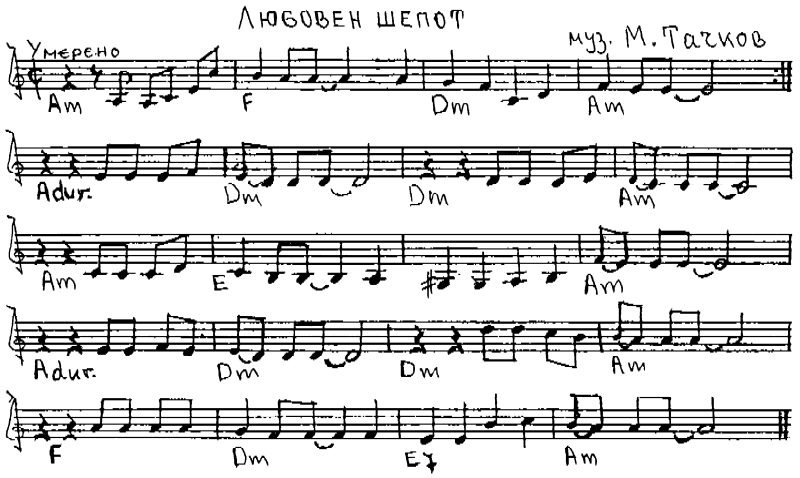 ЛЮБОВЕН ШЕПОТ
Умерено
муз. М. Тачков
Am F Dm Am
Adur. Dm Dm Am
Am E Am
Adur. Dm Dm Am
F Dm E7 Am